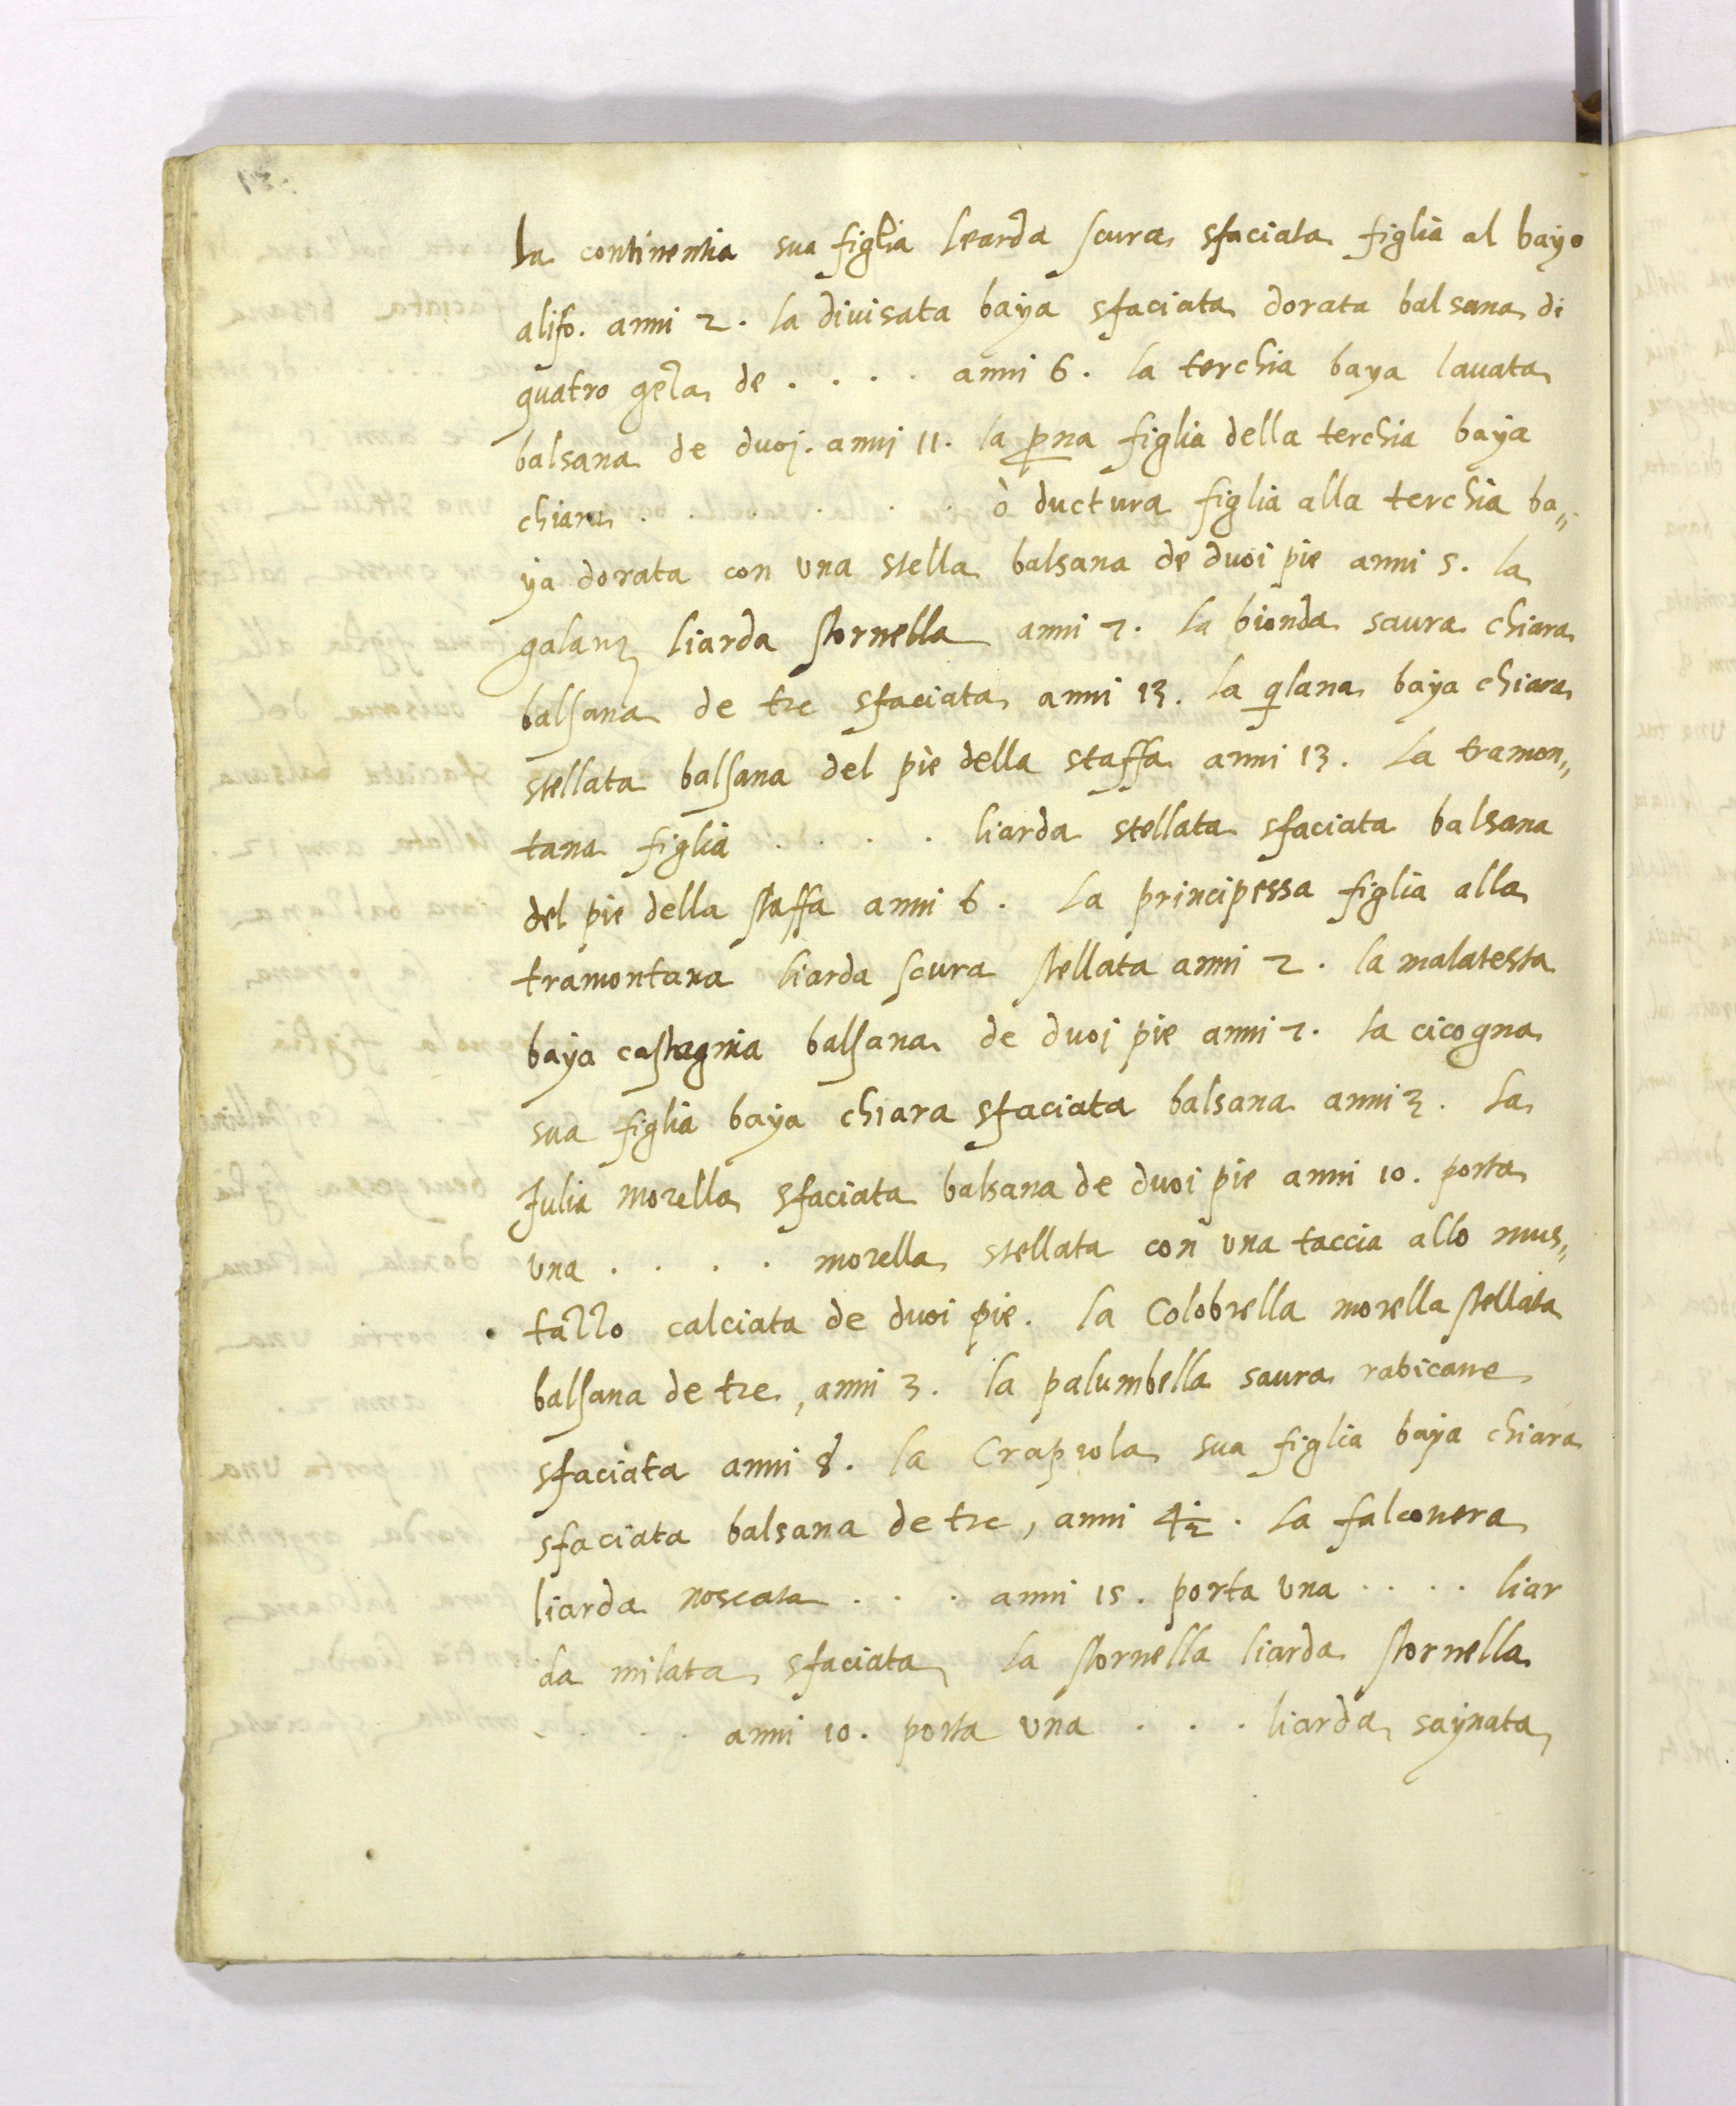 La continentia sua figlia learda scura sfaciata figlia al bayo
alifo. anni 2. la divisata baya sfaciata dorata balsana di
quatro gela de . . . . anni 6. la terchia baya lauata
balsana de duoj. annj 11. la pna figlia della terchia baya
chiara . . . . . . . ò ductura figlia alla terchia ba„
ya dorata con una stella balsana de duoi pie anni 5. la
liarda stornella anni 7. la bionda saura chiara
balsana de tre sfaciata anni 13. la qlana baya chiara
stellata balsana del piè della staffa anni 13. La tramon„
tana figlia . . . . liarda stellata sfaciata balsana
del pie della staffa anni 6. La principessa figlia alla
tramontana liarda scura stellata anni 2. la malatesta
baya castagnia balsana de duoj pie anni 7. la cicogna
sua figlia baya chiara sfaciata balsana anni 3. La
Julia morella sfaciata balsana de duoi pie anni 10. porta
una . . . . morella stellata con una taccia allo mus„
tazzo calciata de duoi pie. la Colobrella morella stellata
balsana de tre, anni 3. la palumbella saura rabicane
sfaciata anni 8. la Crapiola sua figlia baya chiara
sfaciata balsana de tre, anni 4½. La falconera
liarda moscata . . . anni 15. porta una . . . . liar
da milata sfaciata la stornella liarda stornella
. . . . anni 10. porta una . . . liarda saynata